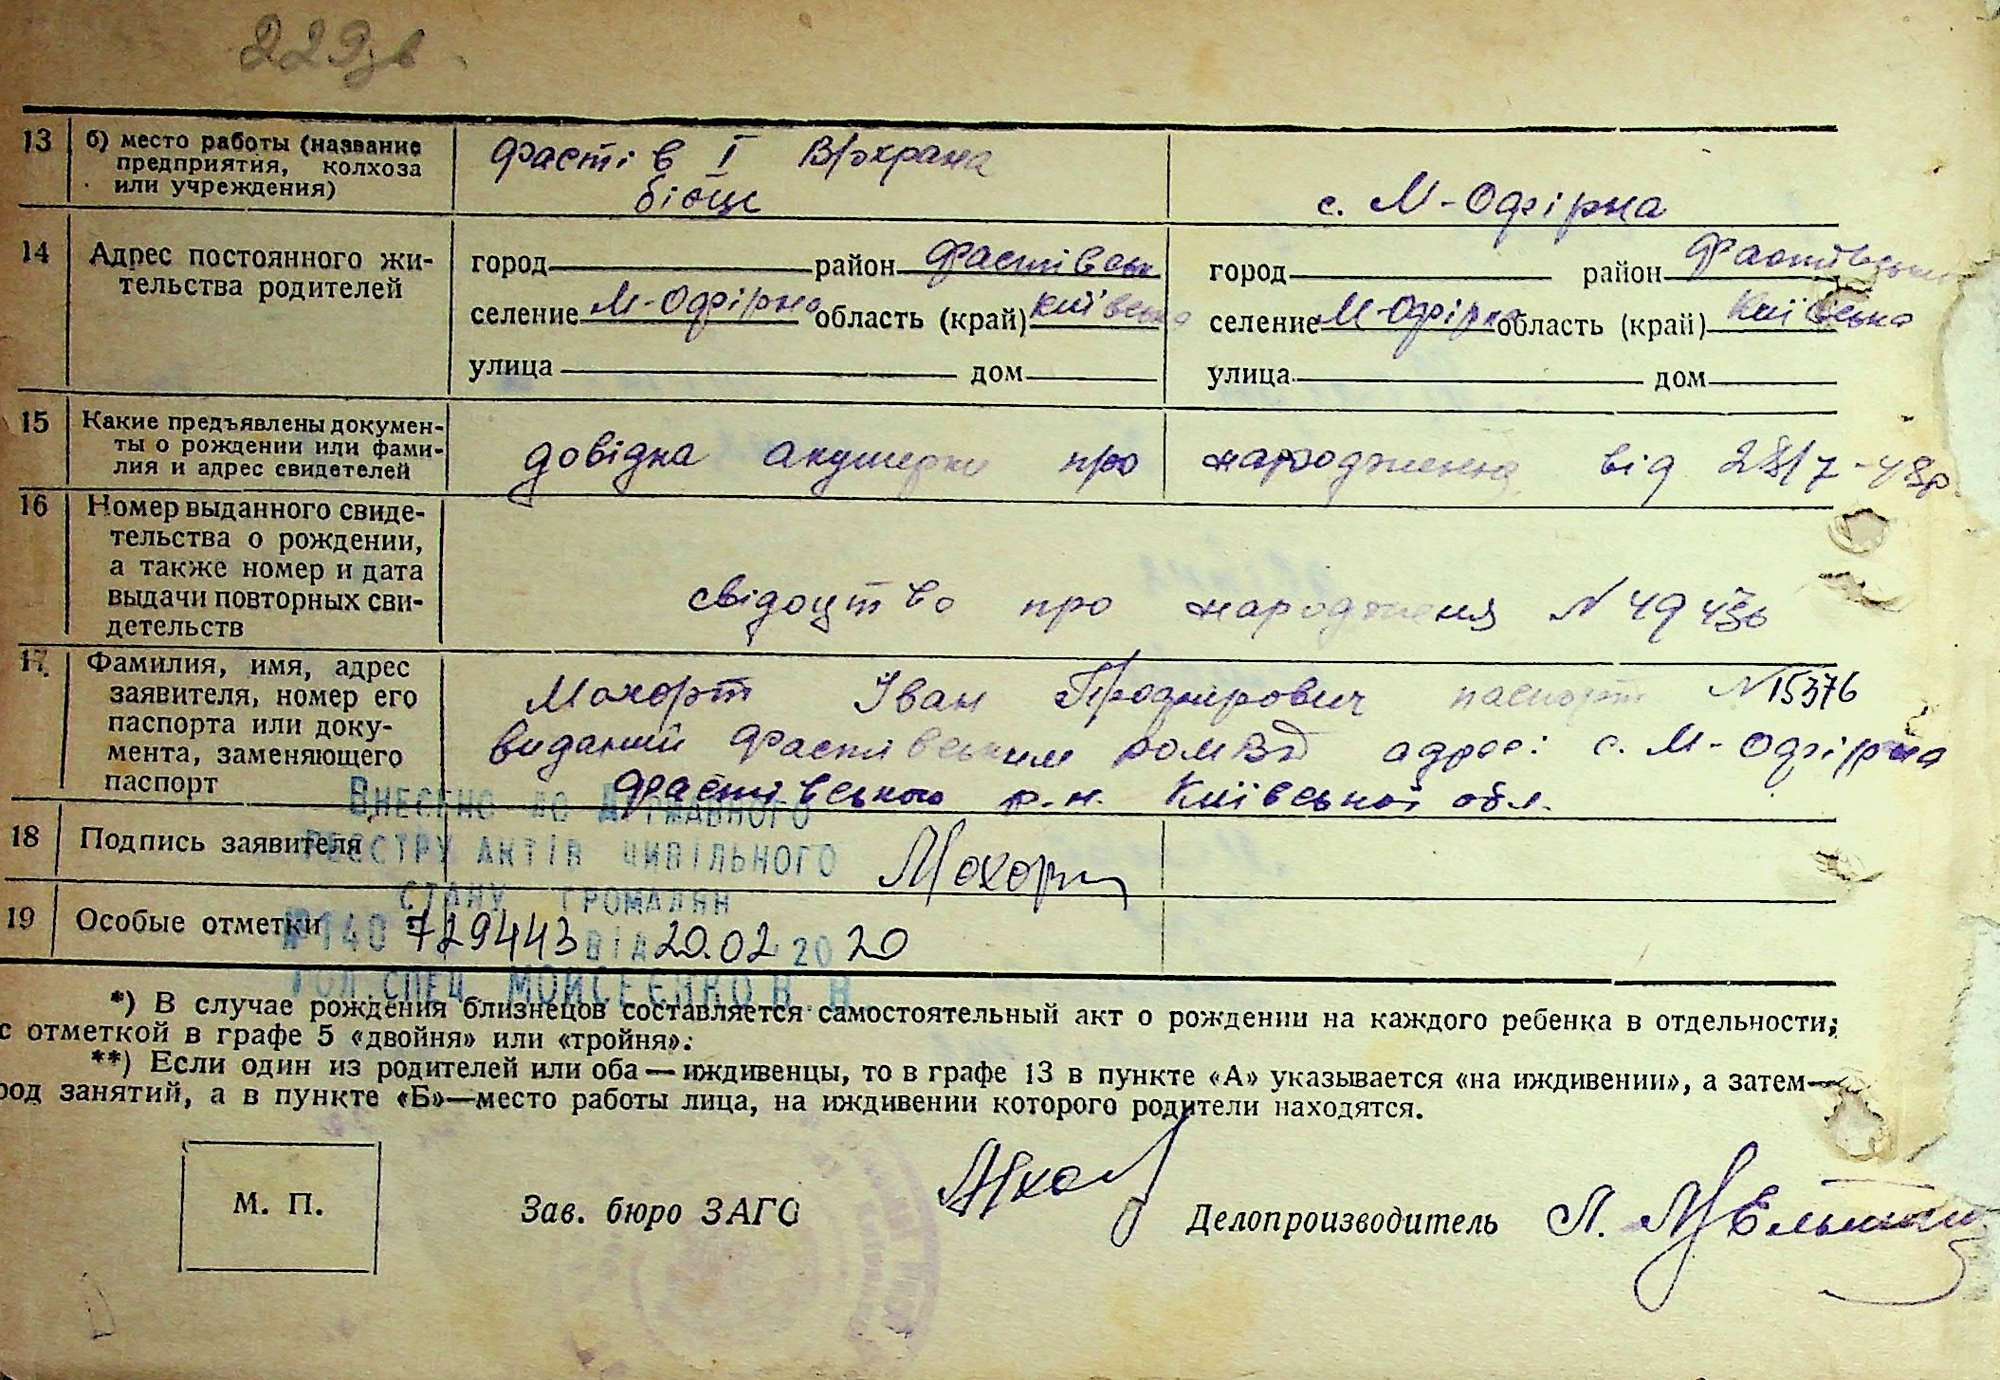 229зв.
13 б) место работы (название предприятия, колхоза или учреждения) Фастів I В/охрана
бієць с. М-Офірна
14 Адрес постоянного жительства родителей
город район Фастівськ город район Фастівський
селение М-Офірна область (край) Київська селение М-Офірна область (край) Київська
улица дом улица дом
15 Какие предъявлены документы о рождении или фамилия и адрес свидетелей
довідка акушерки про народження від 28/7-48р.
16 Номер выданного свидетельства о рождении, а также номер и дата выдачи повторных свидетельств
свідоцтво про народженя N
17. Фамилия, имя, адрес заявителя, номер его паспорта или документа, заменяющего паспорт
Мохорт Іван паспорт N 15376
виданий Фастівським РОМВД адрес: с. М-Офірна
Фастівського р-н. Київської обл.
18 Подпись заявителя Мохорт
19 Особые отметки
Внесено до Державного
реєстру актів цивільного
стану громадян
№140 729443 від 20.02 2020
Гол.спец. Мойсеєнко В.В.
*) В случае рождения близнецов составляется самостоятельный акт о рождении на каждого ребенка в отдельности;
с отметкой в графе 5 «двойня» или «тройня».
**) Если один из родителей или оба — иждивенцы, то в графе 13 в пункте «А» указывается «на иждивении», а затем—
род занятий, а в пункте «Б»—место работы лица, на иждивении которого родители находятся.
М. П. Зав. бюро ЗАГС Делопроизводитель Л.